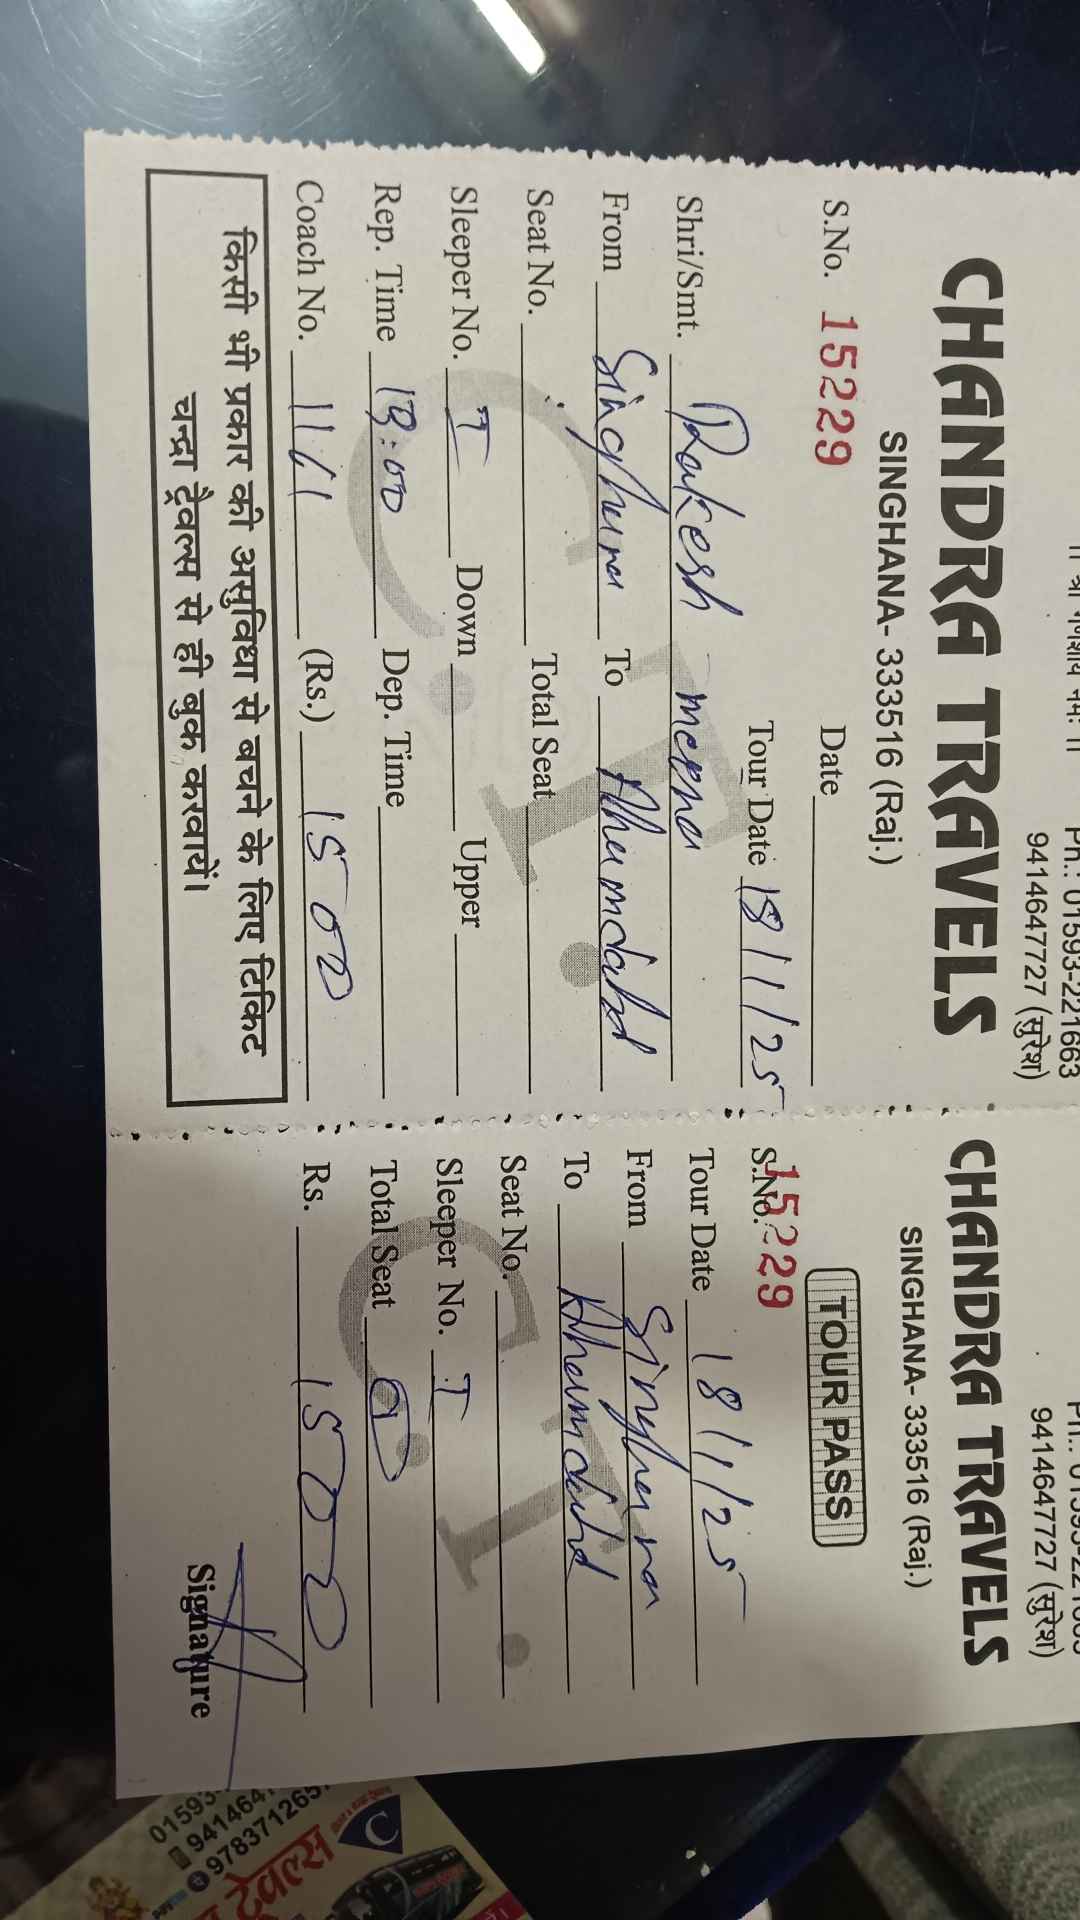 Ph.: 01593-221663
9414647727 (सुरेश)
CHANDRA TRAVELS
SINGHANA- 333516 (Raj.)
S.No. 15229 Date
Tour Date 18/1/25
Shri/Smt. Rakesh meena
From Singhana To Ahemdabd
Seat No. Total Seat
Sleeper No. I Down Upper
Rep. Time Dep. Time
Coach No. 1161 (Rs.) 1500
किसी भी प्रकार की असुविधा से बचने के लिए टिकिट
चन्द्रा ट्रैवल्स से ही बुक करवायें।
C.T.
9414647727 (सुरेश)
CHANDRA TRAVELS
SINGHANA- 333516 (Raj.)
TOUR PASS
S.No. 15229
Tour Date 18/1/25
From Singhana
To Ahemdabd
Seat No.
Sleeper No. I
Total Seat
Rs. 1500
Signature
C.T.
01593-
941464
978371265
ट्रैवल्स
C